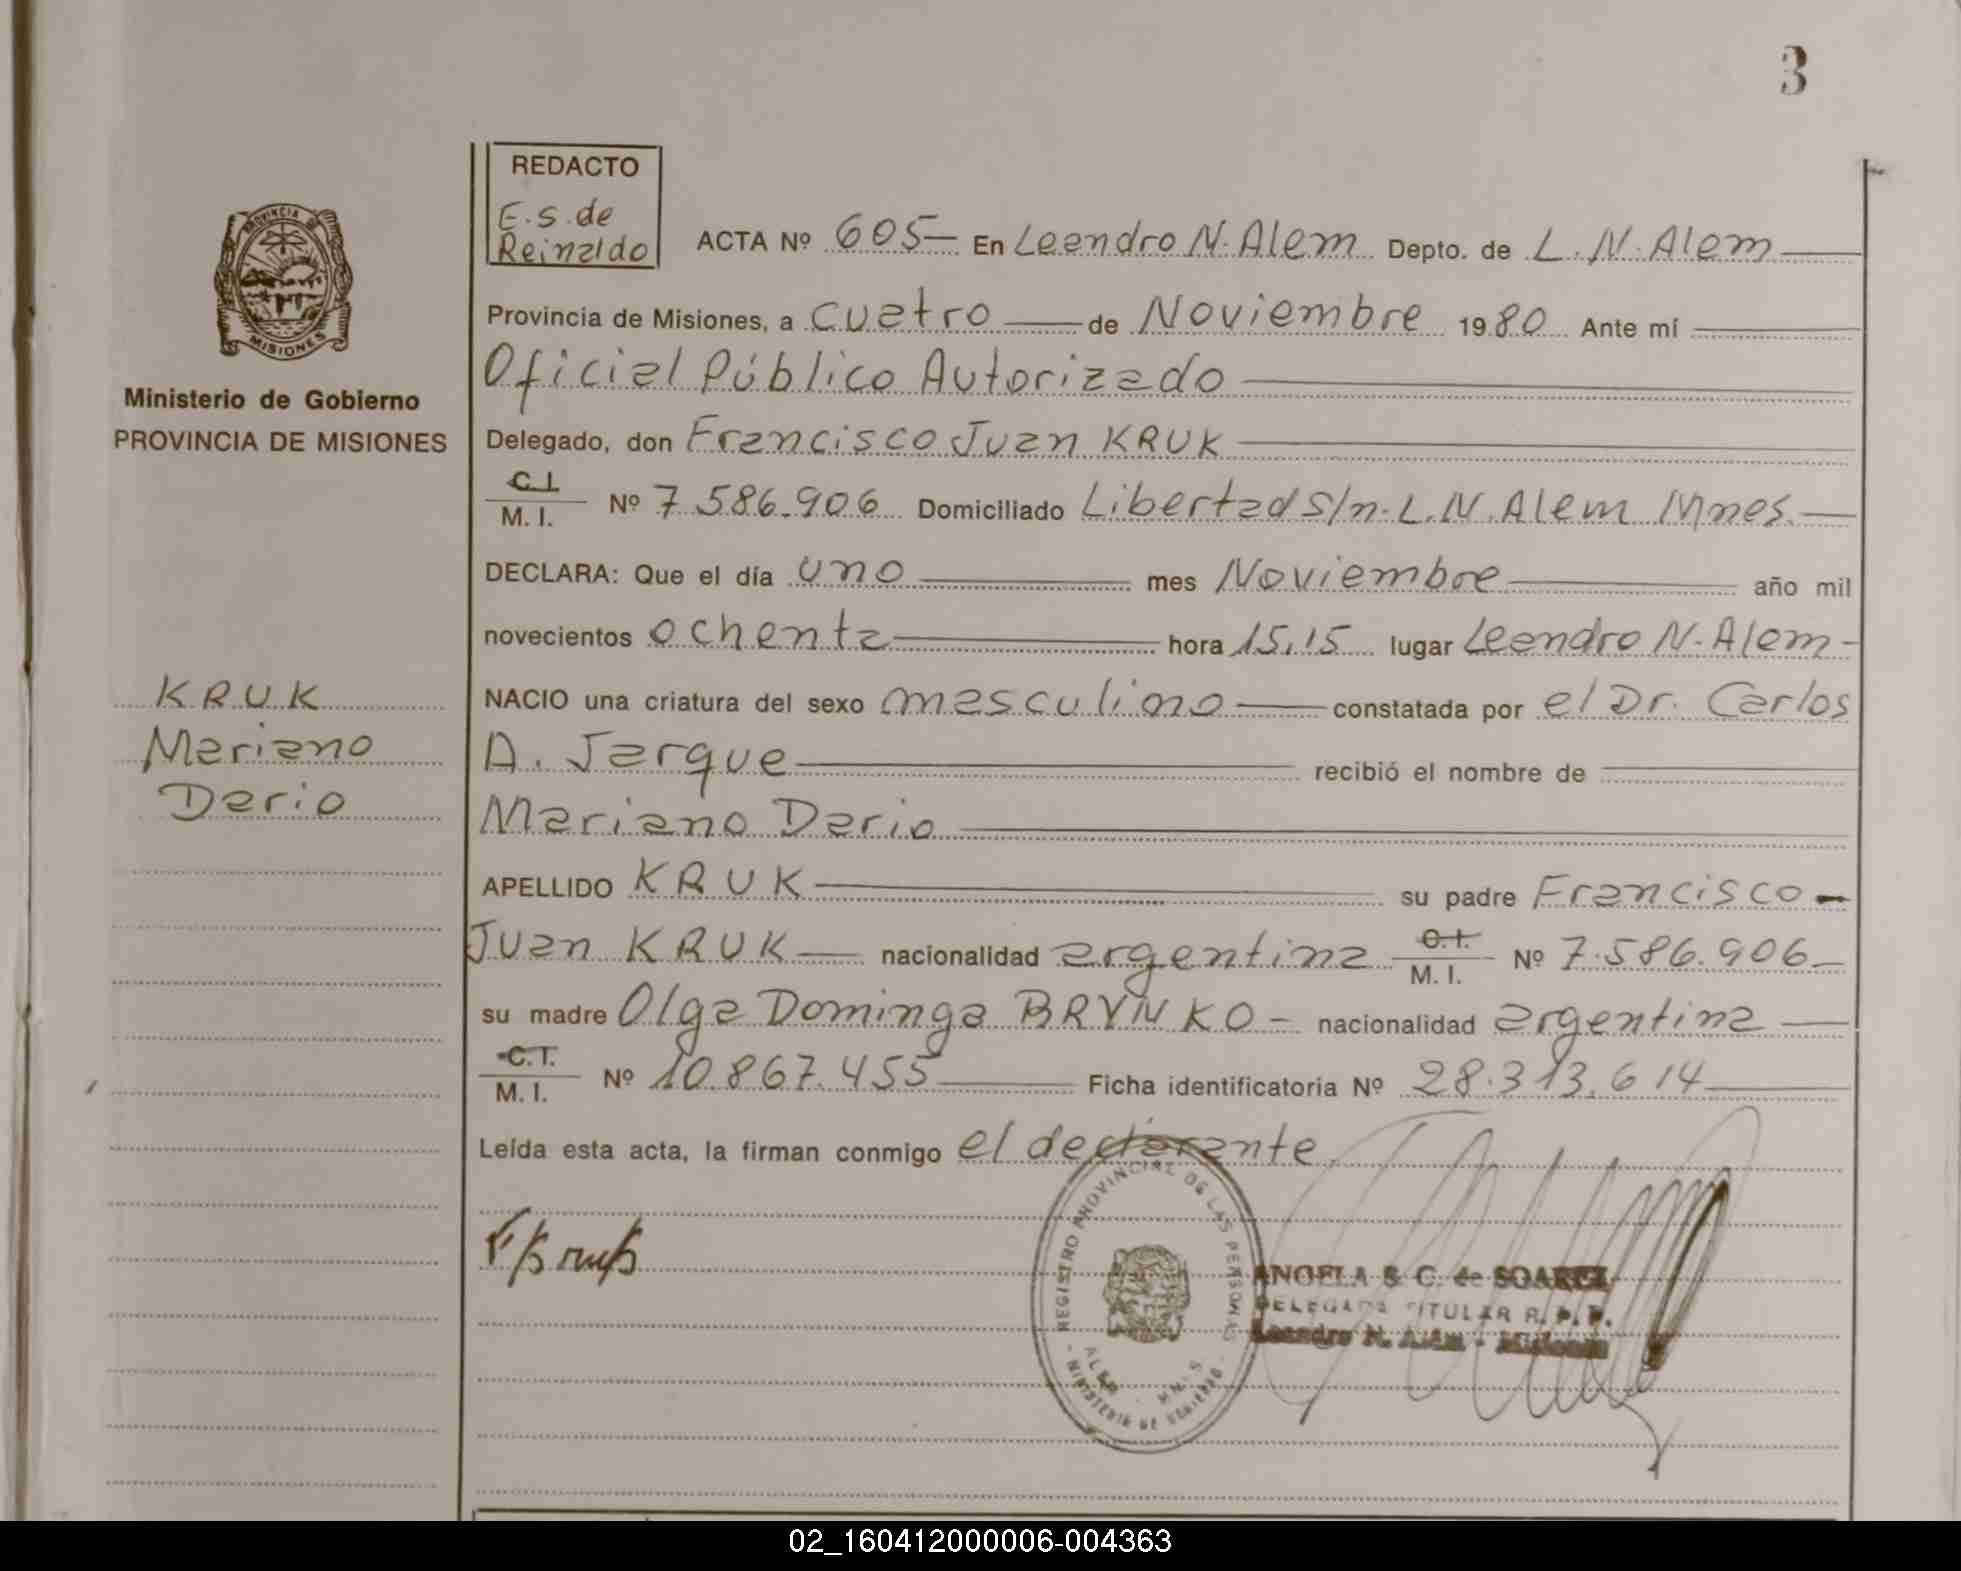 3
REDACTO
E.S. de
Reinaldo
ACTA Nº 605— En Leandro N. Alem Depto. de L. N. Alem
Provincia de Misiones, a cuatro de Noviembre 1980 Ante mí
Oficial Público Autorizado
Delegado, don Francisco Juan KRUK
C.I.
M. I. Nº 7.586.906 Domiciliado Libertad S/n. L. N. Alem Mnes.
DECLARA: Que el día uno mes Noviembre año mil
novecientos ochenta hora 15,15 lugar Leandro N. Alem-
NACIO una criatura del sexo masculino constatada por el Dr. Carlos
A. Jarque recibió el nombre de
Mariano Dario
APELLIDO KRUK su padre Francisco
Juan KRUK nacionalidad argentina C.I.
M. I. Nº 7.586.906
su madre Olga Dominga BRYNKO - nacionalidad argentina
C.I.
M. I. Nº 10.867.455 Ficha identificatoria Nº 28.313.614
Leída esta acta, la firman conmigo el declarante
PROVINCIA DE
MISIONES
Ministerio de Gobierno
PROVINCIA DE MISIONES
KRUK
Mariano
Dario
F Kruk
REGISTRO PROVINCIAL DE LAS PERSONAS
MINISTERIO DE GOBIERNO
ANGELA S. C. de SOAREZ
DELEGADA TITULAR R. P. P.
Leandro N. Alem - Misiones
02_160412000006-004363